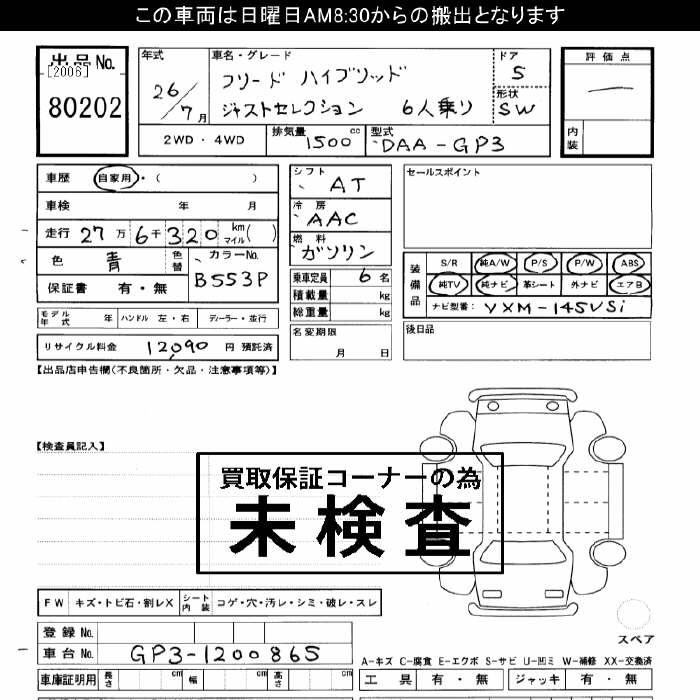 この車両は日曜日AM8:30からの搬出となります
出品No.
[2006]
80202
年式 26/7月
車名・グレード
フリード ハイブリッド
ジャストセレクション 6人乗り
ドア 5
形状 SW
評価点
ー
内装
2WD・4WD 排気量 1500cc 型式 DAA-GP3
車歴 自家用・( )
車検 年 月
走行 27万6千320 km マイル( )
色 青 色替 カラーNo. B553P
保証書 有・無
シフト AT
冷房 AAC
燃料 ガソリン
乗車定員 6名
積載量 kg
総重量 kg
名変期限
月 日
セールスポイント
装備品
S/R 純A/W P/S P/W ABS
純TV 純ナビ 革シート 外ナビ エアB
ナビ型番: VXM-145VSi
後日品
モデル年式 年 ハンドル 左・右 ディーラー・並行
リサイクル料金 12,090 円 預託済
【出品店申告欄(不良箇所・欠品・注意事項等)】
【検査員記入】
買取保証コーナーの為
未検査
FW キズ・トビ石・割レX シート内装 コゲ・穴・汚レ・シミ・破レ・スレ
登録No.
車台No. GP3-1200865
車庫証明用 長さ cm 幅 cm 高さ cm
スペア
A-キズ C-腐食 E-エクボ S-サビ U-凹ミ W-補修 XX-交換済
工具 有・無 ジャッキ 有・無